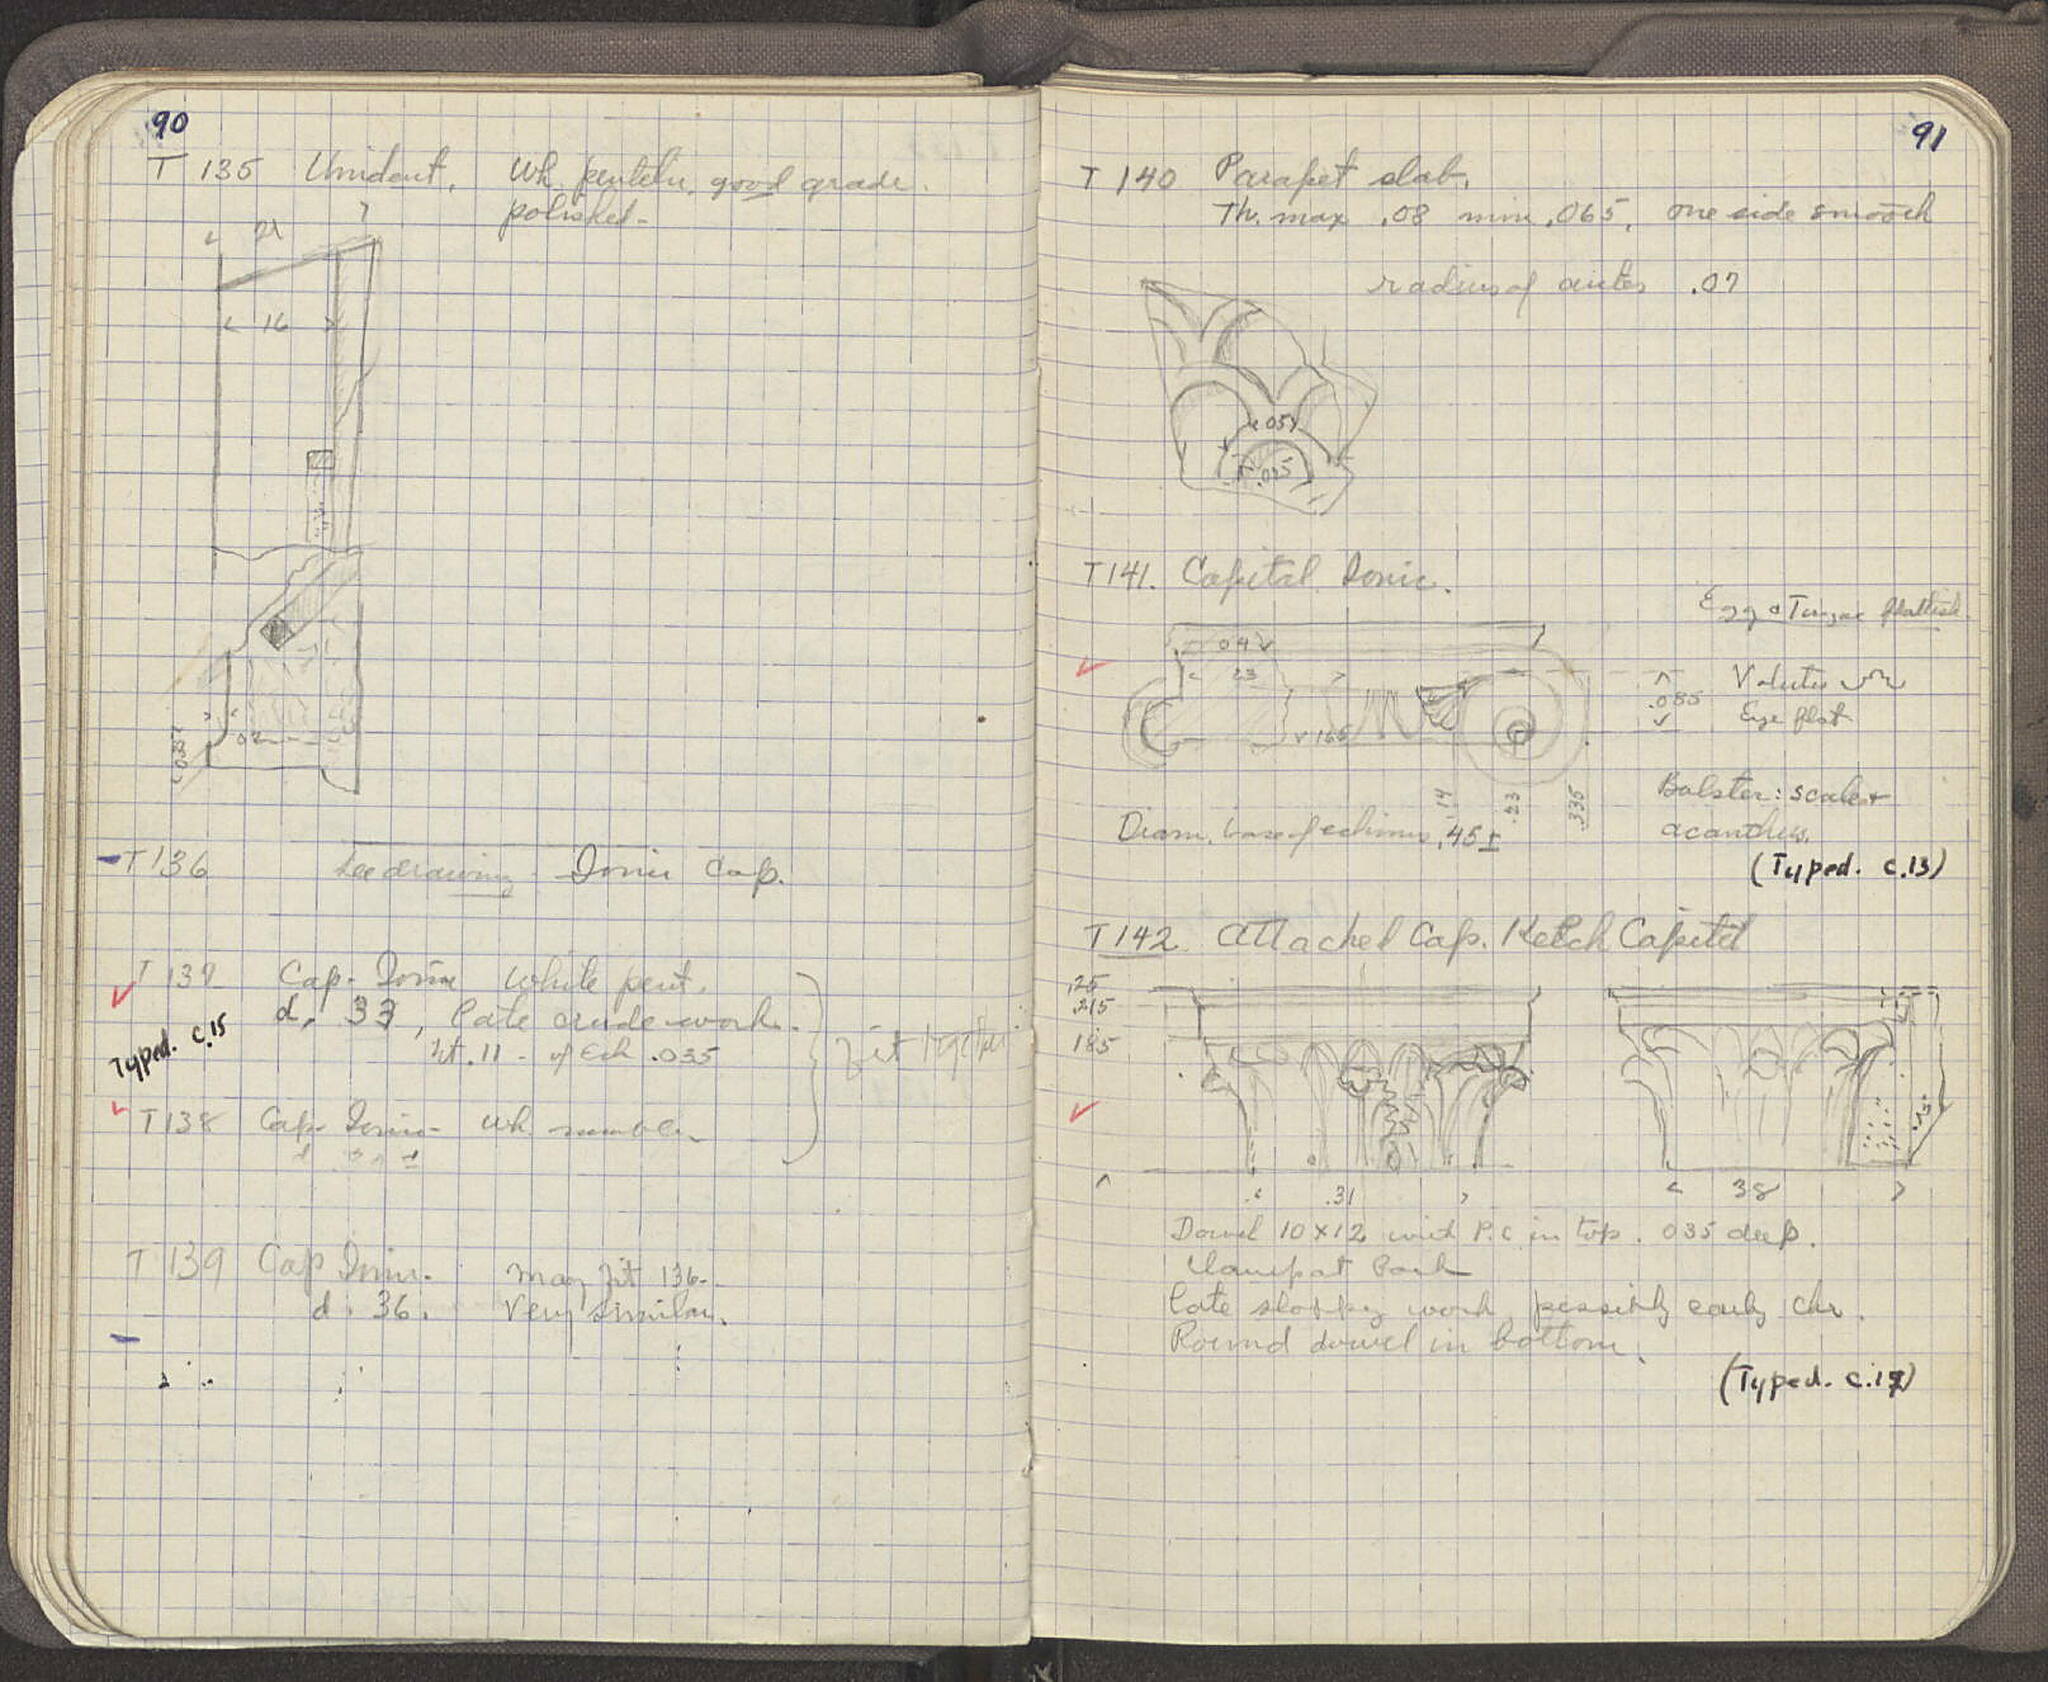 90
T 135 Unident. Wh. pentelic, good grade.
polished-
21
16
.035
02
T 136 See drawing - Ionic Cap.
T 137 Cap. Ionic White pent.
d. 33, late crude work.
ht. .11 - of Ech .035
Typed. C.15
fit together
T 138 Cap. Ionic - Wh.
T 139 Cap Ionic. may fit 136-
d. 36. Very similar.
91
T 140 Parapet slab.
Th. max .08 min .065, one side smooth
radius of .07
.05
.025
T 141. Capital Ionic.
Egg & Tongue flattish
04
23
.085
Volutes
Eye flat
.165
.14
.23
.335
Bolster: scale +
acanthus.
Diam. base of echinus .45±
(Typed. C.13)
T 142 Attached Cap. Capital
.25
.215
185
.31
38
Dowel 10 x 12 with P.C in top. 035 deep.
late sloppy work, possibly early Chr.
Round dowel in bottom.
(Typed. C.17)